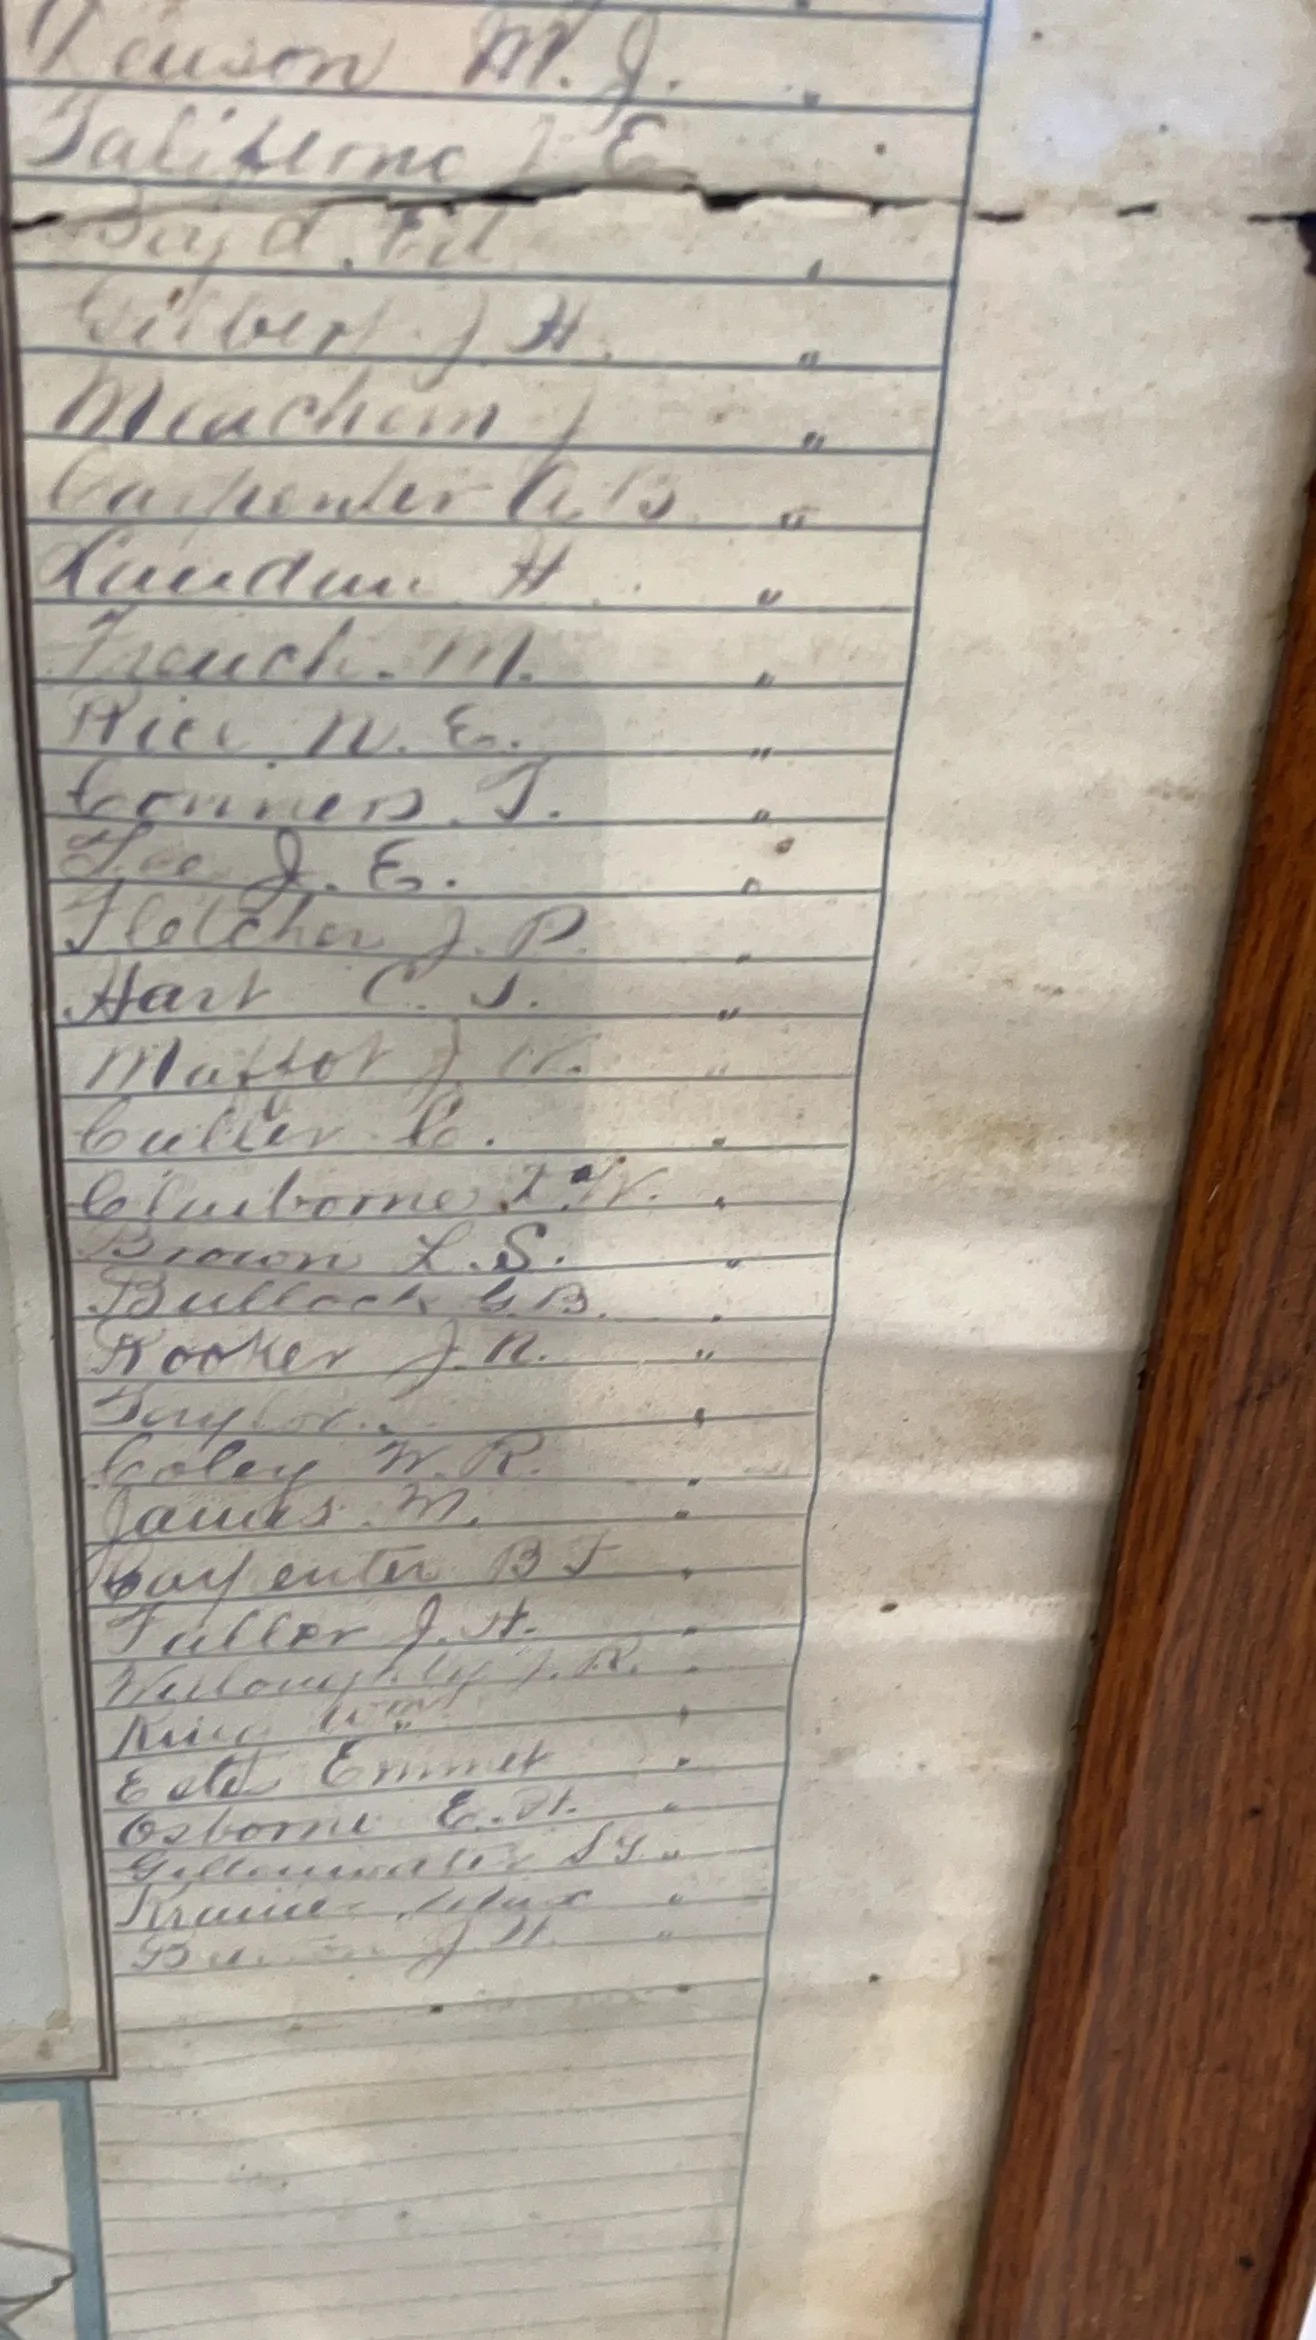 M. J. "
Taliferro J E
Boyd. Ed "
Gilbert J H. "
Meachem J "
Carpenter A. B. "
H. "
French. M. "
Rice N. E. "
Conners. T. "
Lee J. E. "
Fletcher J. P. "
Hart C. T. "
Maffot J W. "
Culler C. "
Claiborne W. "
Brown L. S. "
Bullock G. B. "
Rooker J. R. "
Taylor "
Coley W. R. "
James. M. "
Carpenter B F "
Fuller J. H. "
Willoughby J. R. "
King Wm "
Emmet "
Osborne E. H. "
S G "
Max "
J H. "